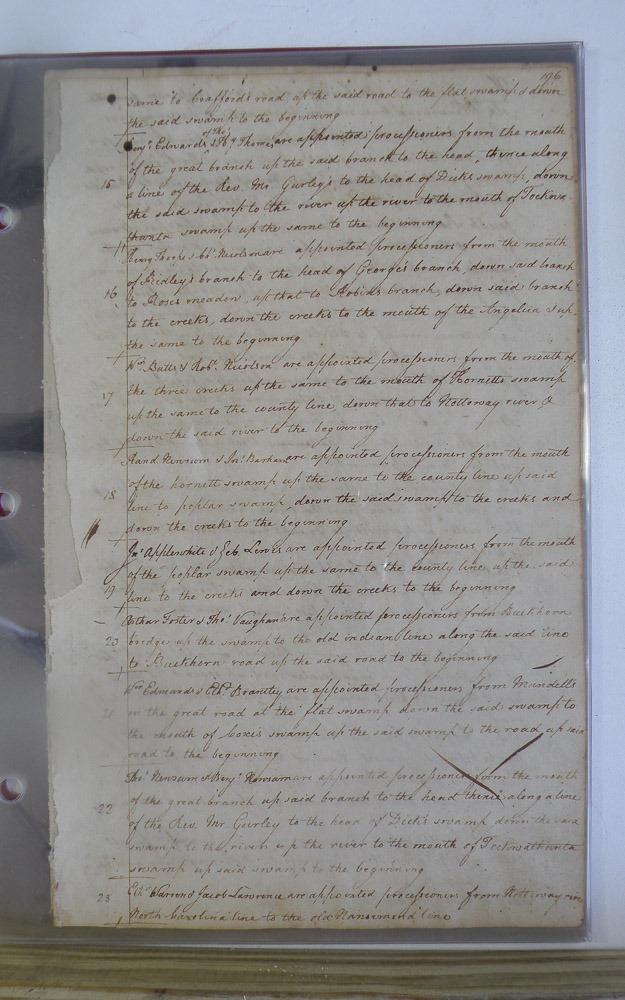 196
same to Crafford's road, up the said road to the flat swamp & down
the said swamp to the beginning
Benj. Edwards & Thos. Thorne, are appointed processioners from the mouth
of the great branch up the said branch to the head, thence along
15 a line of the Rev. Mr Gurley's to the head of Dicks swamp, down
the said swamp to the river up the river to the mouth of Tockwa-
thanta swamp up the same to the beginning
Henry Thorpe & are appointed processioners from the mouth
of Ridley's branch to the head of George's branch, down said branch
16 to Roses meadow, up that to Robins branch, down said branch
to the creeks, down the creeks to the mouth of the Angelica & up
the same to the beginning
Wm. Butts & Robt. Nicolson are appointed processioners from the mouth of
17 the three creeks up the same to the mouth of Hornetts swamp
up the same to the county line, down that to Nottoway river, &
down the said river to the beginning
Rand. Newsum & Jno. Barham are appointed processioners from the mouth
of the hornett swamp up the same to the county line up said
18 line to poplar swamp, down the said swamp to the creeks and
down the creeks to the beginning
Jno. Applewhite & Zeb. Lewis are appointed processioners from the mouth
of the poplar swamp up the same to the county line up the said
19 line to the creeks and down the creeks to the beginning
Arthur Foster & Thos. Vaughan are appointed processioners from Buckhorn
20 bridge up the swamp to the old indian line along the said line
to Buckhorn road up the said road to the beginning
Wm. Edwards & Ethd. Brantley are appointed processioners from Mundell's
21 on the great road at the flat swamp down the said swamp to
the mouth of Coxes swamp up the said swamp to the road up said
road to the beginning
Thos. Newsum & Benj. Newsum are appointed processioners from the mouth
22 of the great branch up said branch to the head thence along a line
of the Rev. Mr Gurley to the head of Dick's swamp down the said
swamp to the river up the river to the mouth of Tockwathunta
swamp up said swamp to the beginning
23 Etd. Warren & Jacob Lawrence are appointed processioners from Nottoway river
North Carolina line to the old Nansemond line